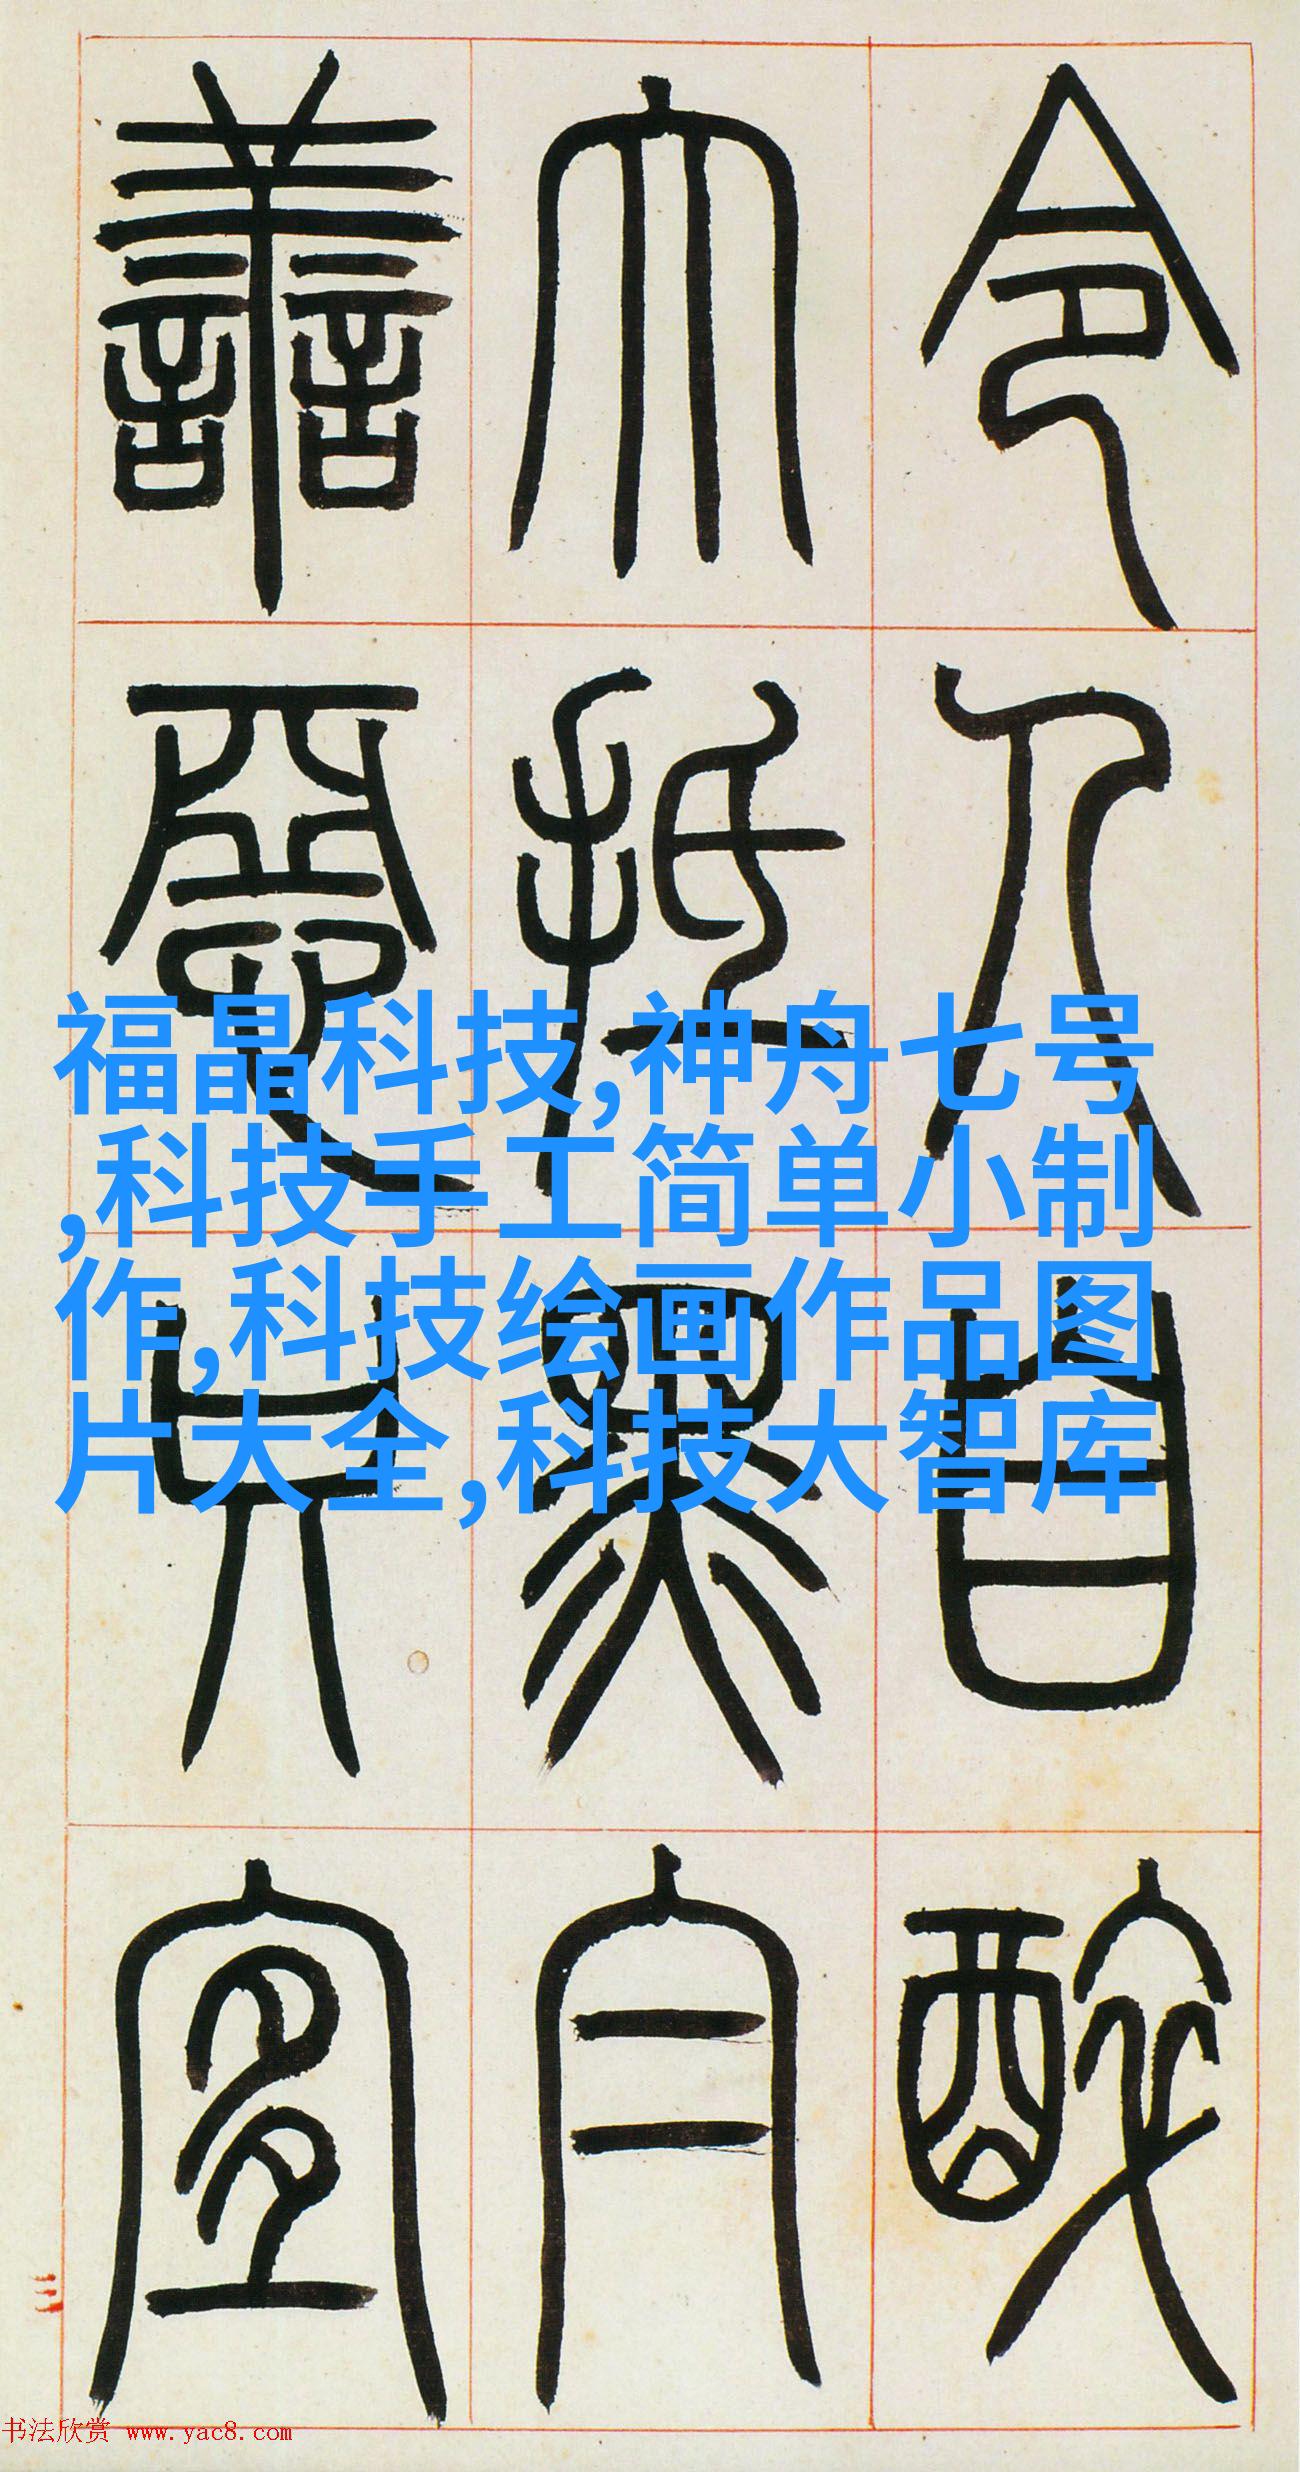 令人自醉
大抵黑
善宜
福晶科技,神舟七号
,科技手工简单小制
作,科技绘画作品图
片大全,科技大智库
书法欣赏 www.yac8.com